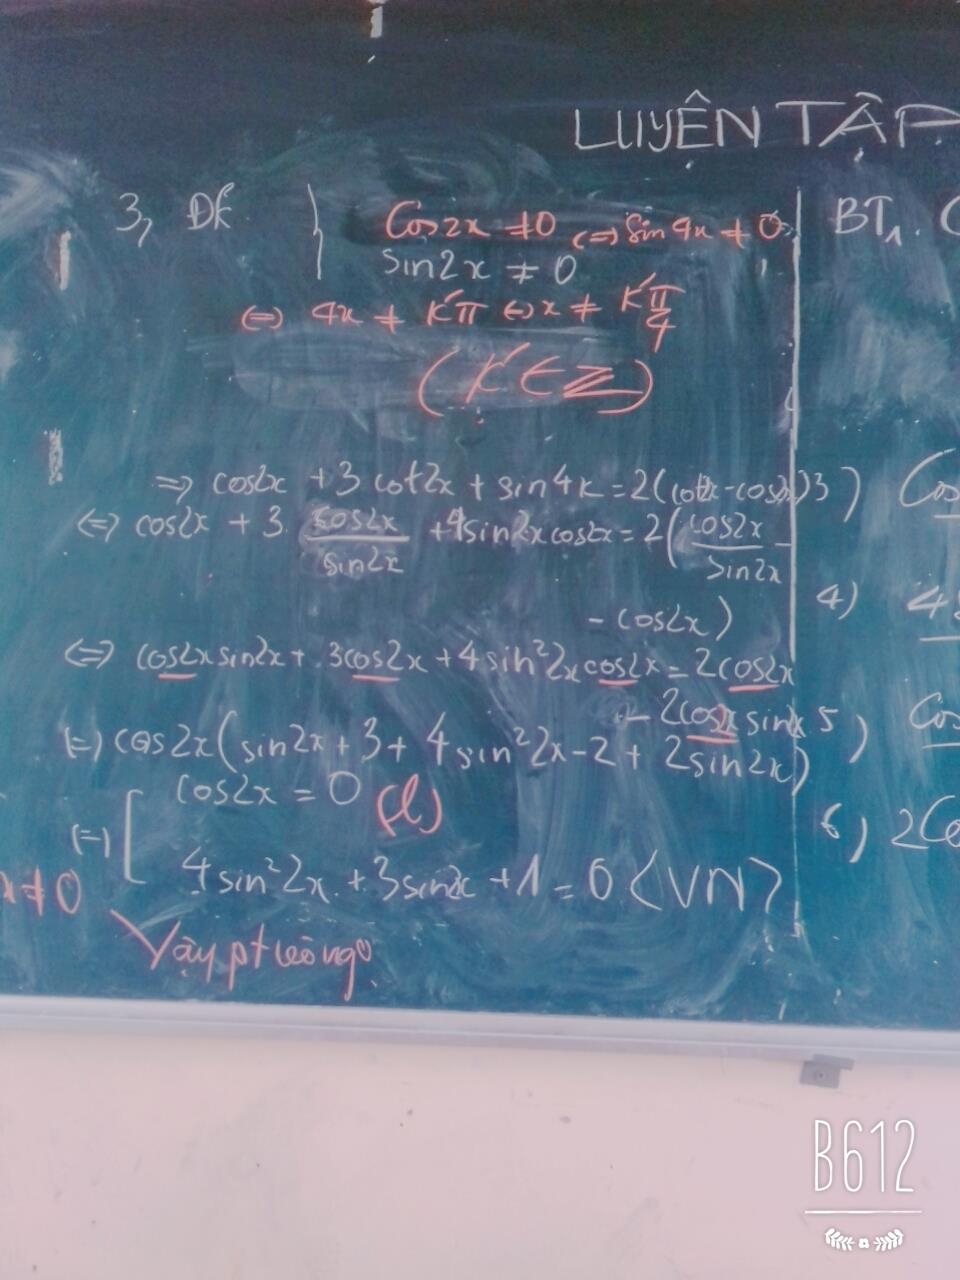 LUYỆN TẬP
3, ĐK { cos2x ≠ 0 <=> sin4x ≠ 0
sin2x ≠ 0
<=> 4x ≠ Kπ <=> x ≠ Kπ/4
(K ∈ Z)
=> cos2x + 3 cot2x + sin4x = 2(cot2x - cos2x)
<=> cos2x + 3 cos2x/sin2x + 4sin2x cos2x = 2(cos2x/sin2x -
- cos2x)
<=> cos2x sin2x + 3cos2x + 4 sin²2x cos2x = 2cos2x
- 2cos2x sin2x
<=> cos2x(sin2x + 3 + 4 sin²2x - 2 + 2sin2x)
<=> [ cos2x = 0 (l)
4sin²2x + 3sin2x + 1 = 0 (VN)
x ≠ 0
Vậy pt vô ngo
BT1. C
3) Cos
4) 4
5) Cos
6) 2Co
B612